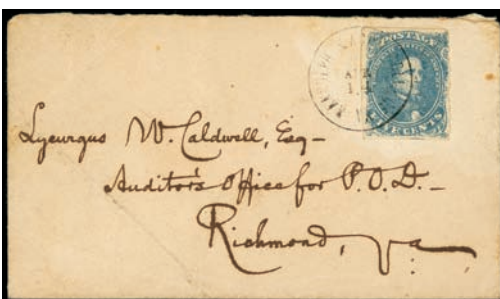 POSTAGE
CENTS
Lycurgus W. Caldwell, Esq-
Auditor's Office for P.O.D.-
Richmond, Va